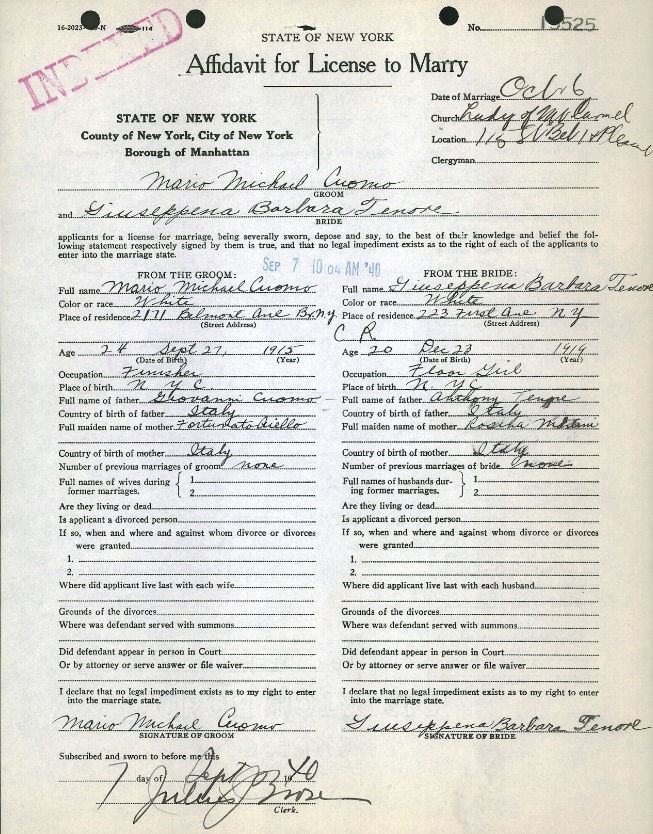 16-2023-N 114
INDEXED
No. 19525
STATE OF NEW YORK
Affidavit for License to Marry
Date of Marriage Oct 6
Church Lady of Mt Carmel
Location 115
Clergyman
STATE OF NEW YORK
County of New York, City of New York
Borough of Manhattan
Mario Michael Cuomo
GROOM
and Giuseppena Barbara Tenore
BRIDE
applicants for a license for marriage, being severally sworn, depose and say, to the best of their knowledge and belief the fol-
lowing statement respectively signed by them is true, and that no legal impediment exists as to the right of each of the applicants to
enter into the marriage state.
SEP 7 10 04 AM '40
FROM THE GROOM:
Full name Mario Michael Cuomo
Color or race White
Place of residence 2171 Belmont Ave Bx. N.Y.
(Street Address)
Age 24 Sept 27, 1915
(Date of Birth) (Year)
Occupation Finisher
Place of birth N Y C
Full name of father Giovanni Cuomo
Country of birth of father Italy
Full maiden name of mother Fortunato Aiello
Country of birth of mother Italy
Number of previous marriages of groom none
Full names of wives during
former marriages.
1
2
Are they living or dead
Is applicant a divorced person
If so, when and where and against whom divorce or divorces
were granted
1.
2.
Where did applicant live last with each wife
Grounds of the divorces
Where was defendant served with summons
Did defendant appear in person in Court
Or by attorney or serve answer or file waiver
I declare that no legal impediment exists as to my right to enter
into the marriage state.
Mario Michael Cuomo
SIGNATURE OF GROOM
FROM THE BRIDE:
Full name Giuseppena Barbara Tenore
Color or race White
Place of residence 223 First Ave N Y
(Street Address)
C R
Age 20 Dec 23 1919
(Date of Birth) (Year)
Occupation Floor Girl
Place of birth N. Y C
Full name of father Anthony Tenore
Country of birth of father Italy
Full maiden name of mother Rosina
Country of birth of mother Italy
Number of previous marriages of bride none
Full names of husbands dur-
ing former marriages.
1
2
Are they living or dead
Is applicant a divorced person
If so, when and where and against whom divorce or divorces
were granted
1.
2.
Where did applicant live last with each husband
Grounds of the divorces
Where was defendant served with summons
Did defendant appear in person in Court
Or by attorney or serve answer or file waiver
I declare that no legal impediment exists as to my right to enter
into the marriage state.
Giuseppena Barbara Tenore
SIGNATURE OF BRIDE
Subscribed and sworn to before me this
7 day of Sept 1940
Julius
Clerk.